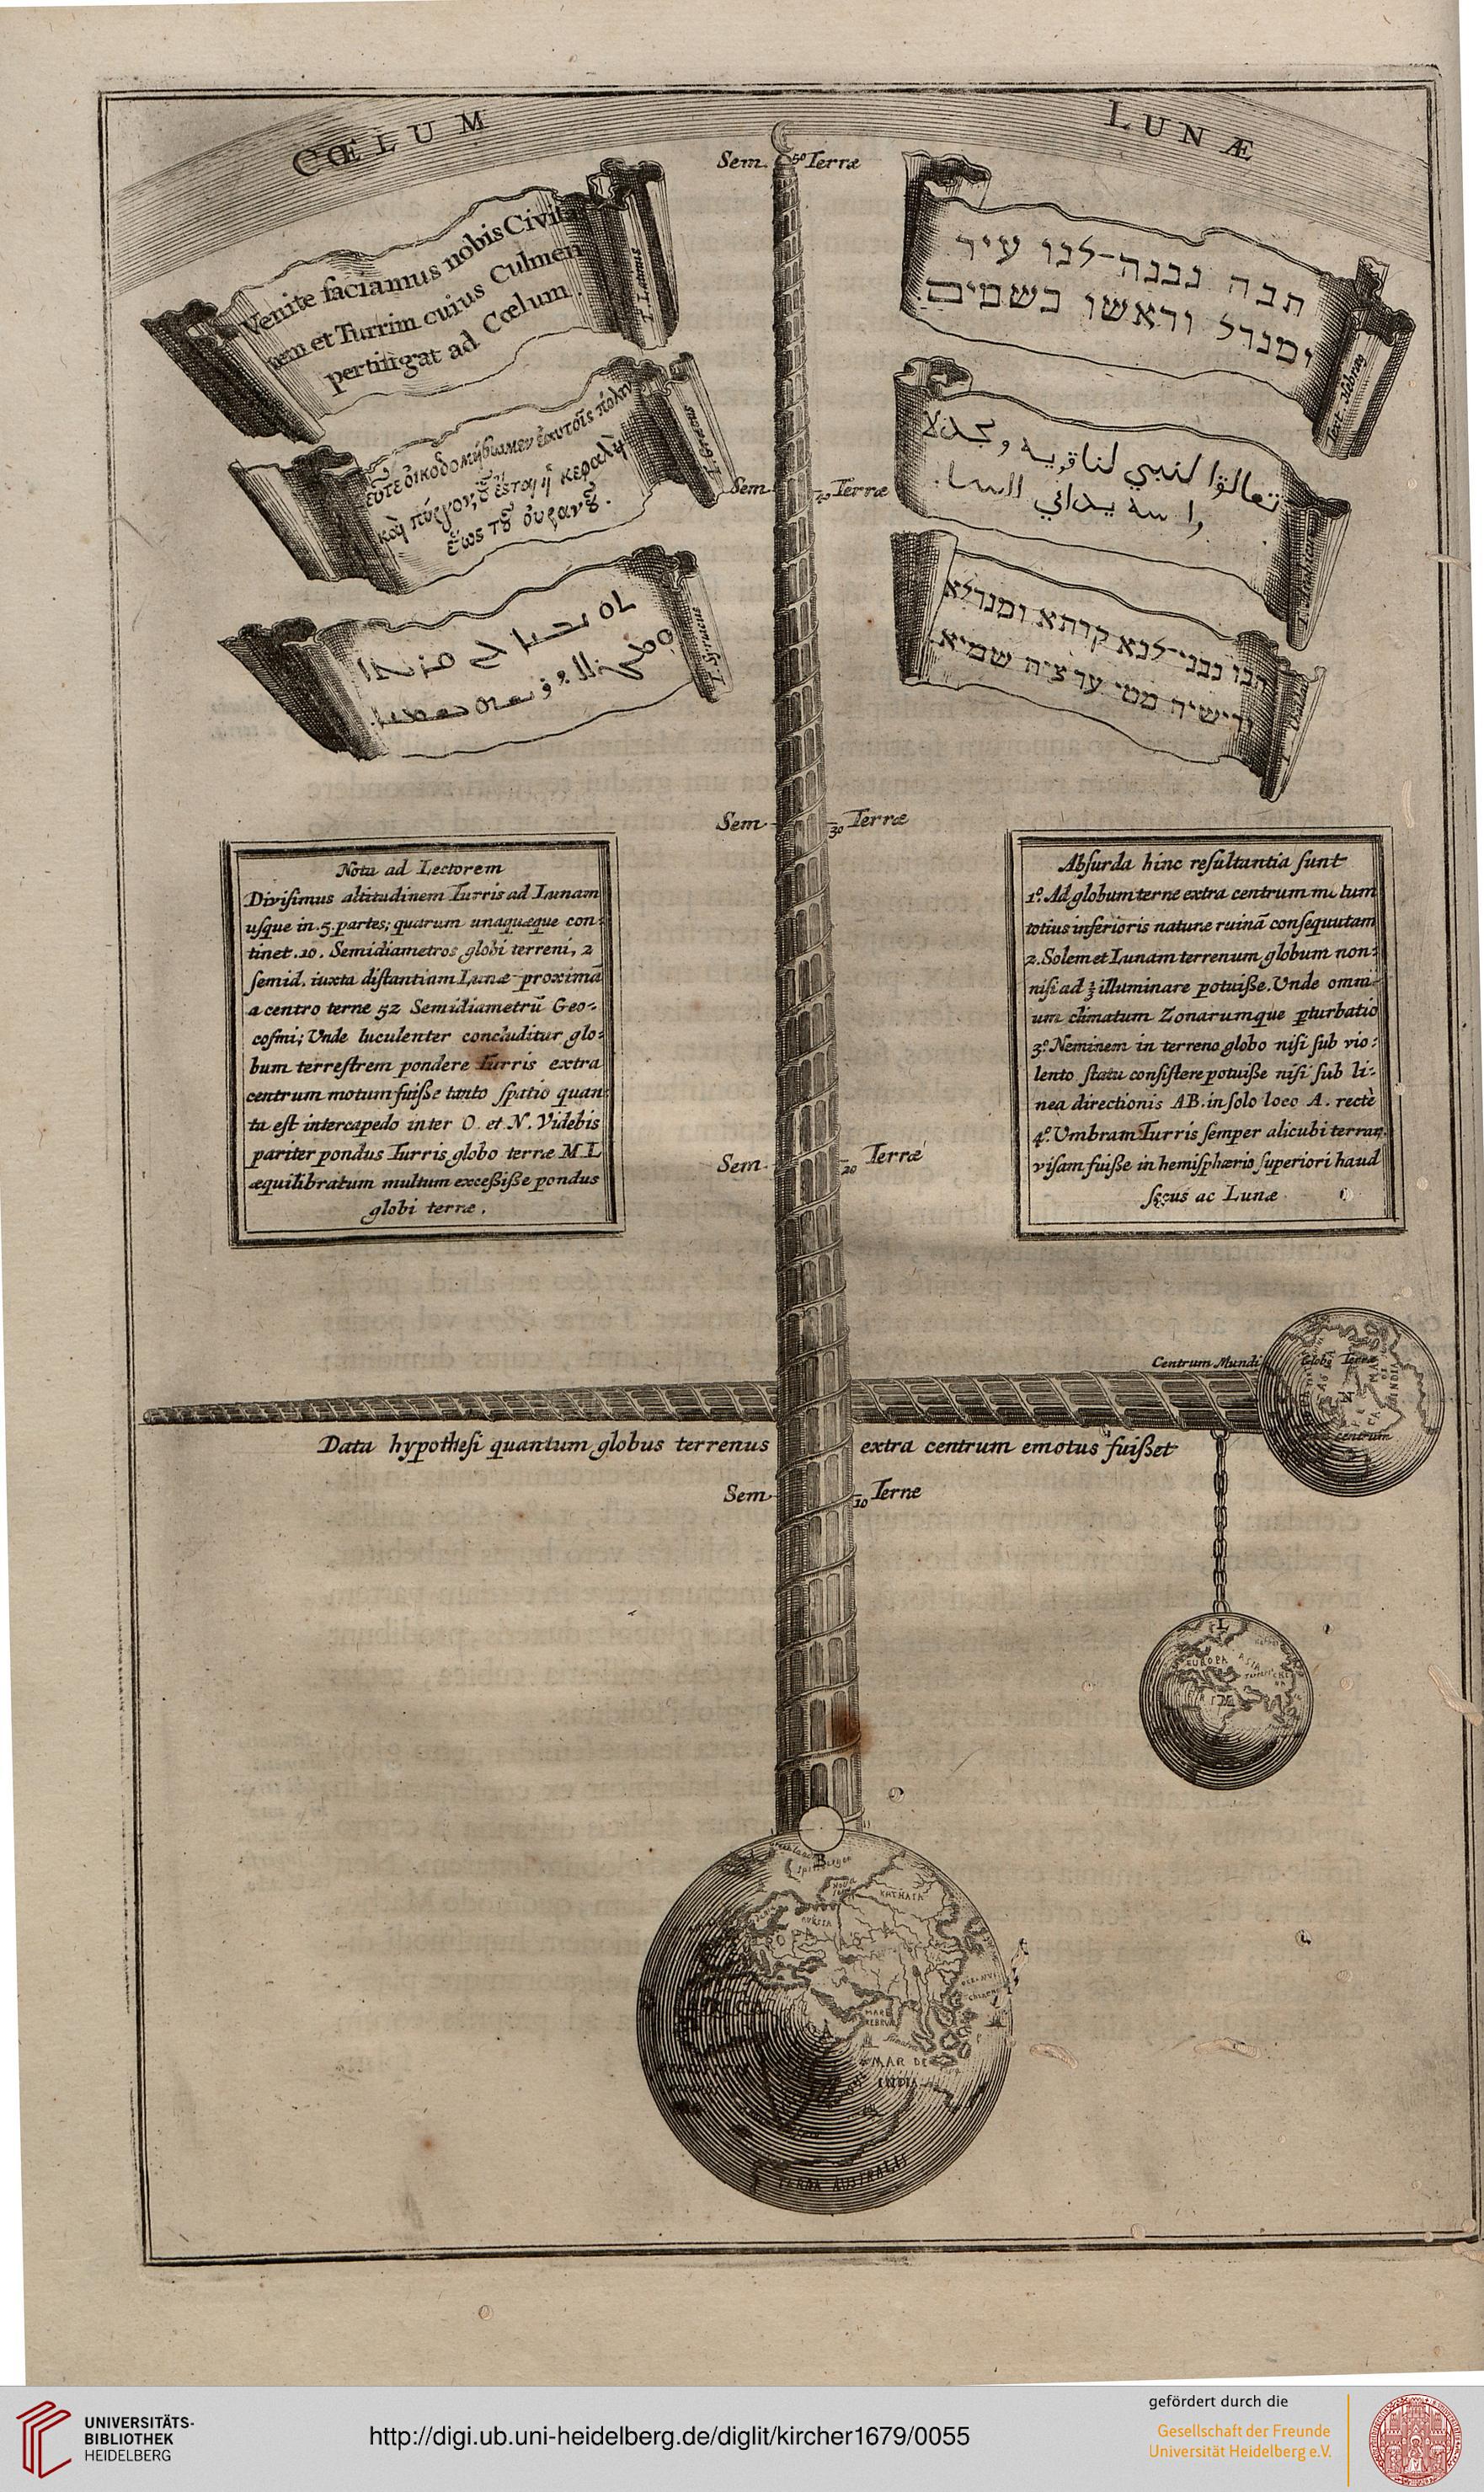 CŒLUM
LUNÆ
Sem. 50 Terræ
Venite faciamus nobis Civita
tem et Turrim cuius Culmen
pertingat ad Cœlum.
T. Latinus
תבה נבנה-לנו עיר
ומגדל וראשו בשמים
Text. Hebræg
καὶ πύργον, οὗ ἔσται ἡ κεφαλὴ
ἕως τοῦ οὐρανοῦ.
T. Græcus
Sem. 40 Terræ
تعالوا لنبني لنا قريه ومجدلا
T. Syriacus
הבו נבני-לנא קרתא ומגדלא
ורישיה מטי ער צית שמיא
Sem. 30 Terræ
Nota ad Lectorem
Divisimus altitudinem Turris ad Lunam
usque in .5. partes; quarum unaquæque con-
tinet .10. Semidiametros globi terreni, 2
semid. iuxta distantiam Lunæ proximã
a centro terræ 52 Semidiametrũ Geo-
cosmi; Unde luculenter concluditur glo-
bum terrestrem pondere Turris extra
centrum motum fuiße tanto spatio quan-
ta est intercapedo inter O. et N. Videbis
pariter pondus Turris globo terræ M L
æquilibratum multum exceßiße pondus
globi terræ.
Absurda hinc resultantia sunt
1º. Ad globum terræ extra centrum mo tum
totius inferioris naturæ ruinã consequutam
2. Solem et Lunam terrenum globum non-
nisi ad ⅓ illuminare potuiße. Unde omni-
um climatum Zonarumque pturbatio
3º. Neminem in terreno globo nisi sub vio-
lento statu consistere potuiße nisi sub li-
nea directionis AB. in solo loco A. rectè
4º. Umbram Turris semper alicubi terrar.
visam fuiße in hemisphærio superiori haud
secus ac Lunæ
Sem. 20 Terræ
Centrum Mundi
Globg Terræ
N
MAR DE INDIA
centrum
Data hypothesi quantum globus terrenus extra centrum emotus fuißet
Sem. 10 Terræ
L
EUROPA
ASIA
B
KATHAIA
RUSSIA
MARE RUBRUM
A
MAR DE
INDIA
TERRA AUSTRALIS
UNIVERSITÄTS-
BIBLIOTHEK
HEIDELBERG
http://digi.ub.uni-heidelberg.de/diglit/kircher1679/0055
gefördert durch die
Gesellschaft der Freunde
Universität Heidelberg e.V.